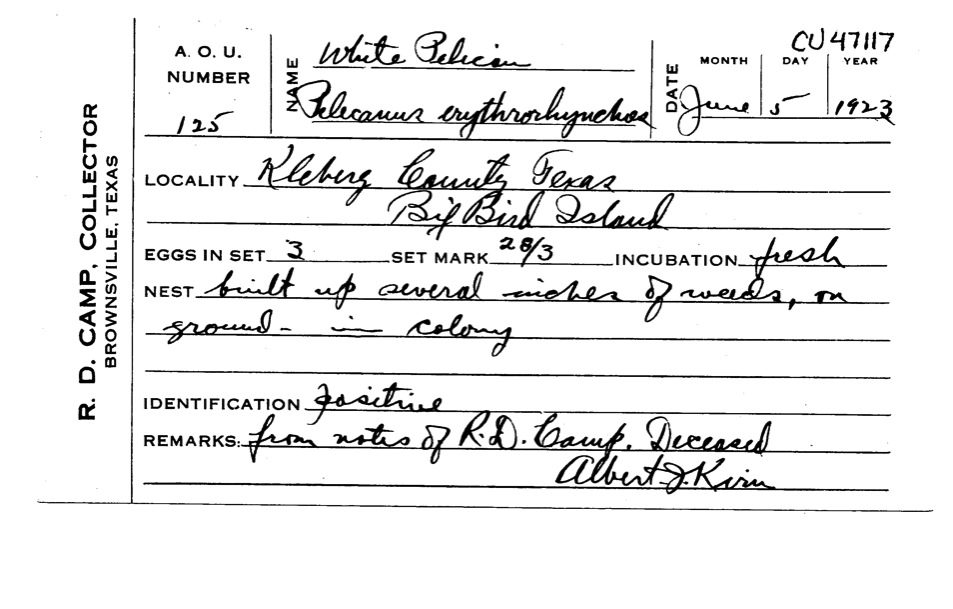 CU 47117
A. O. U. NUMBER 125
NAME White Pelican
Pelecanus erythrorhynchos
DATE MONTH June DAY 5 YEAR 1923
R. D. CAMP, COLLECTOR
BROWNSVILLE, TEXAS
LOCALITY Kleberg County Texas
Big Bird Island
EGGS IN SET 3 SET MARK 28/3 INCUBATION fresh
NEST built up several inches of weeds, on
ground - in colony
IDENTIFICATION positive
REMARKS: from notes of R.D. Camp. Deceased
Albert J. Kirn